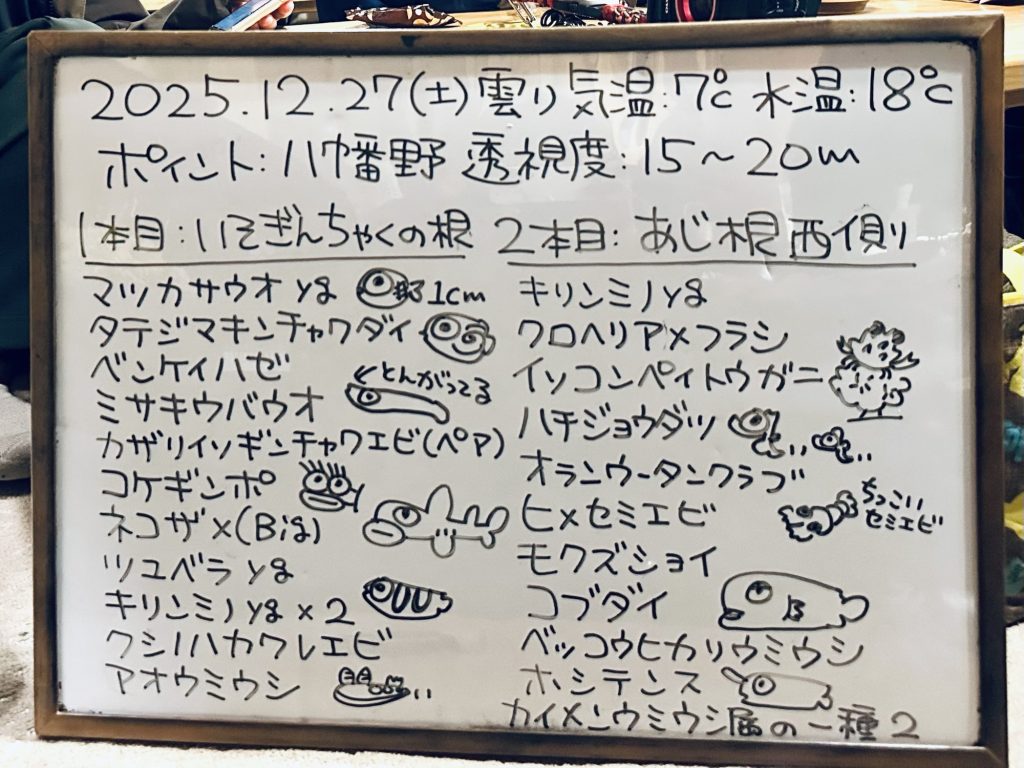 2025.12.27(土) 雲り 気温:7℃ 水温:18℃
ポイント:八幡野 透視度:15～20m
1本目:いそぎんちゃくの根
マツカサウオyg 1cm
タテジマキンチャクダイ
ベンケイハゼ
←とんがってる
ミサキウバウオ
カザリイソギンチャクエビ(ペア)
コケギンポ
ネコザメ(Big)
ツユベラyg
キリンミノyg×2
クシノハカクレエビ
アオウミウシ
2本目:あじ根 西側り
キリンミノyg
クロヘリアメフラシ
イソコンペイトウガニ
ハチジョウダツ
オランウータンクラブ
ヒメセミエビ
ちっこい
セミエビ
モクズショイ
コブダイ
ベッコウヒカリウミウシ
ホシテンス
カイメンウミウシ属の一種2